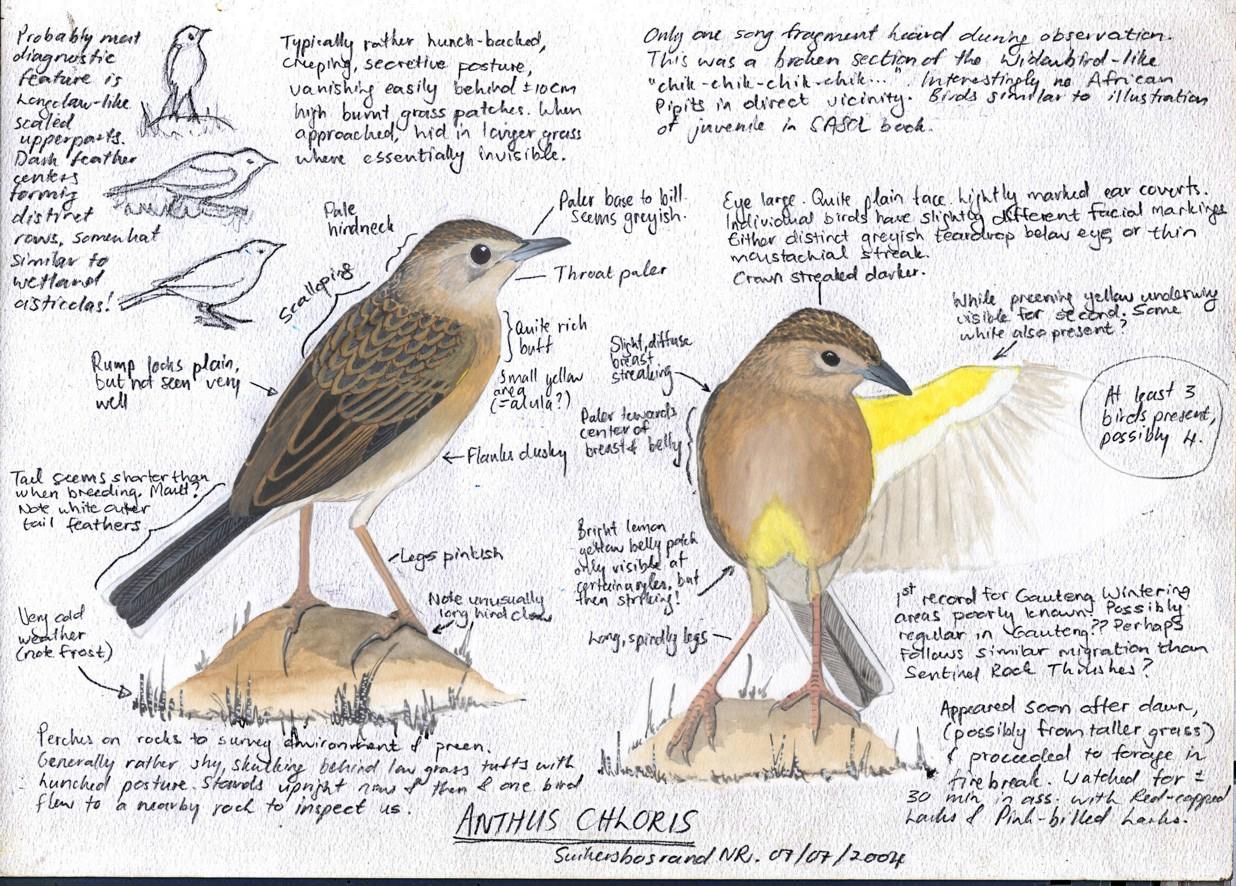 Probably most
diagnostic
feature is
Longclaw-like
scaled
upperparts.
Dark feather
centers
forming
distinct
rows, somewhat
similar to
wetland
cisticolas!
Typically rather hunch-backed,
creeping, secretive posture,
vanishing easily behind ±10cm
high burnt grass patches. When
approached, hid in longer grass
where essentially invisible.
Only one song fragment heard during observation.
This was a broken section of the Widowbird-like
"chik-chik-chik-chik...". Interestingly no African
Pipits in direct vicinity. Birds similar to illustration
of juvenile in SASOL book.
Pale
hindneck
Scalloping
Paler base to bill.
Seems greyish.
Throat paler
Quite rich
buff
Small yellow
area
(=alula?)
Flanks dusky
Rump looks plain,
but not seen very
well
Tail seems shorter than
when breeding. Moult?
Note white outer
tail feathers
Legs pinkish
Note unusually
long hind claw
Very cold
weather
(note frost)
Eye large. Quite plain face. Lightly marked ear coverts.
Individual birds have slightly different facial markings
Either distinct greyish teardrop below eye, or thin
moustachial streak.
Crown streaked darker.
While preening yellow underwing
visible for second. Some
white also present?
Slight, diffuse
breast
streaking
Paler towards
center of
breast & belly
At least 3
birds present,
possibly 4.
Bright lemon
yellow belly patch
only visible at
certain angles, but
then striking!
Long, spindly legs
1st record for Gauteng. Wintering
areas poorly known! Possibly
regular in Gauteng?? Perhaps
follows similar migration than
Sentinel Rock Thrushes?
Appeared soon after dawn,
(possibly from taller grass)
& proceeded to forage in
firebreak. Watched for ±
30 min in ass. with Red-capped
Larks & Pink-billed Larks.
Perches on rocks to survey environment & preen.
Generally rather shy, skulking behind low grass tufts with
hunched posture. Stands upright now & then & one bird
flew to a nearby rock to inspect us.
ANTHUS CHLORIS
Suikersbosrand NR. 07/07/2004